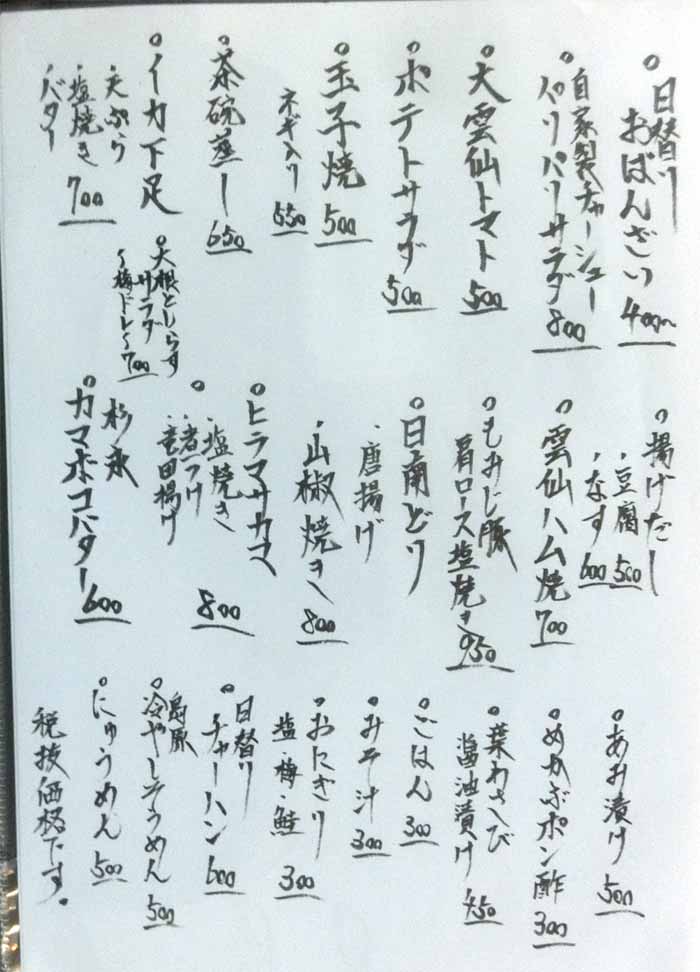 日替り
おばんざい 400〜
自家製チャーシュー
パリパリサラダ 800
大雲仙トマト 500
ポテトサラダ 500
玉子焼 500
ネギ入り 550
茶碗蒸し 650
イカ下足
・天ぷら
・塩焼き
・バター 700
大根としらす
サラダ
〜梅ドレ〜 700
揚げだし
・豆腐 500
・なす 600
雲仙ハム焼 700
もみじ豚
肩ロース塩焼き 950
日南どり
・唐揚げ
・山椒焼き 800
ヒラマサカマ
・塩焼き
・煮つけ
・竜田揚げ 800
杉永
カマボコバター 600
あみ漬け 500
めかぶポン酢 300
葉わさび
醤油漬け 450
ごはん 300
みそ汁 300
おにぎり
塩・梅・鮭 300
日替り
チャーハン 600
島原
冷やしそうめん 500
にゅうめん 500
税抜価格です。